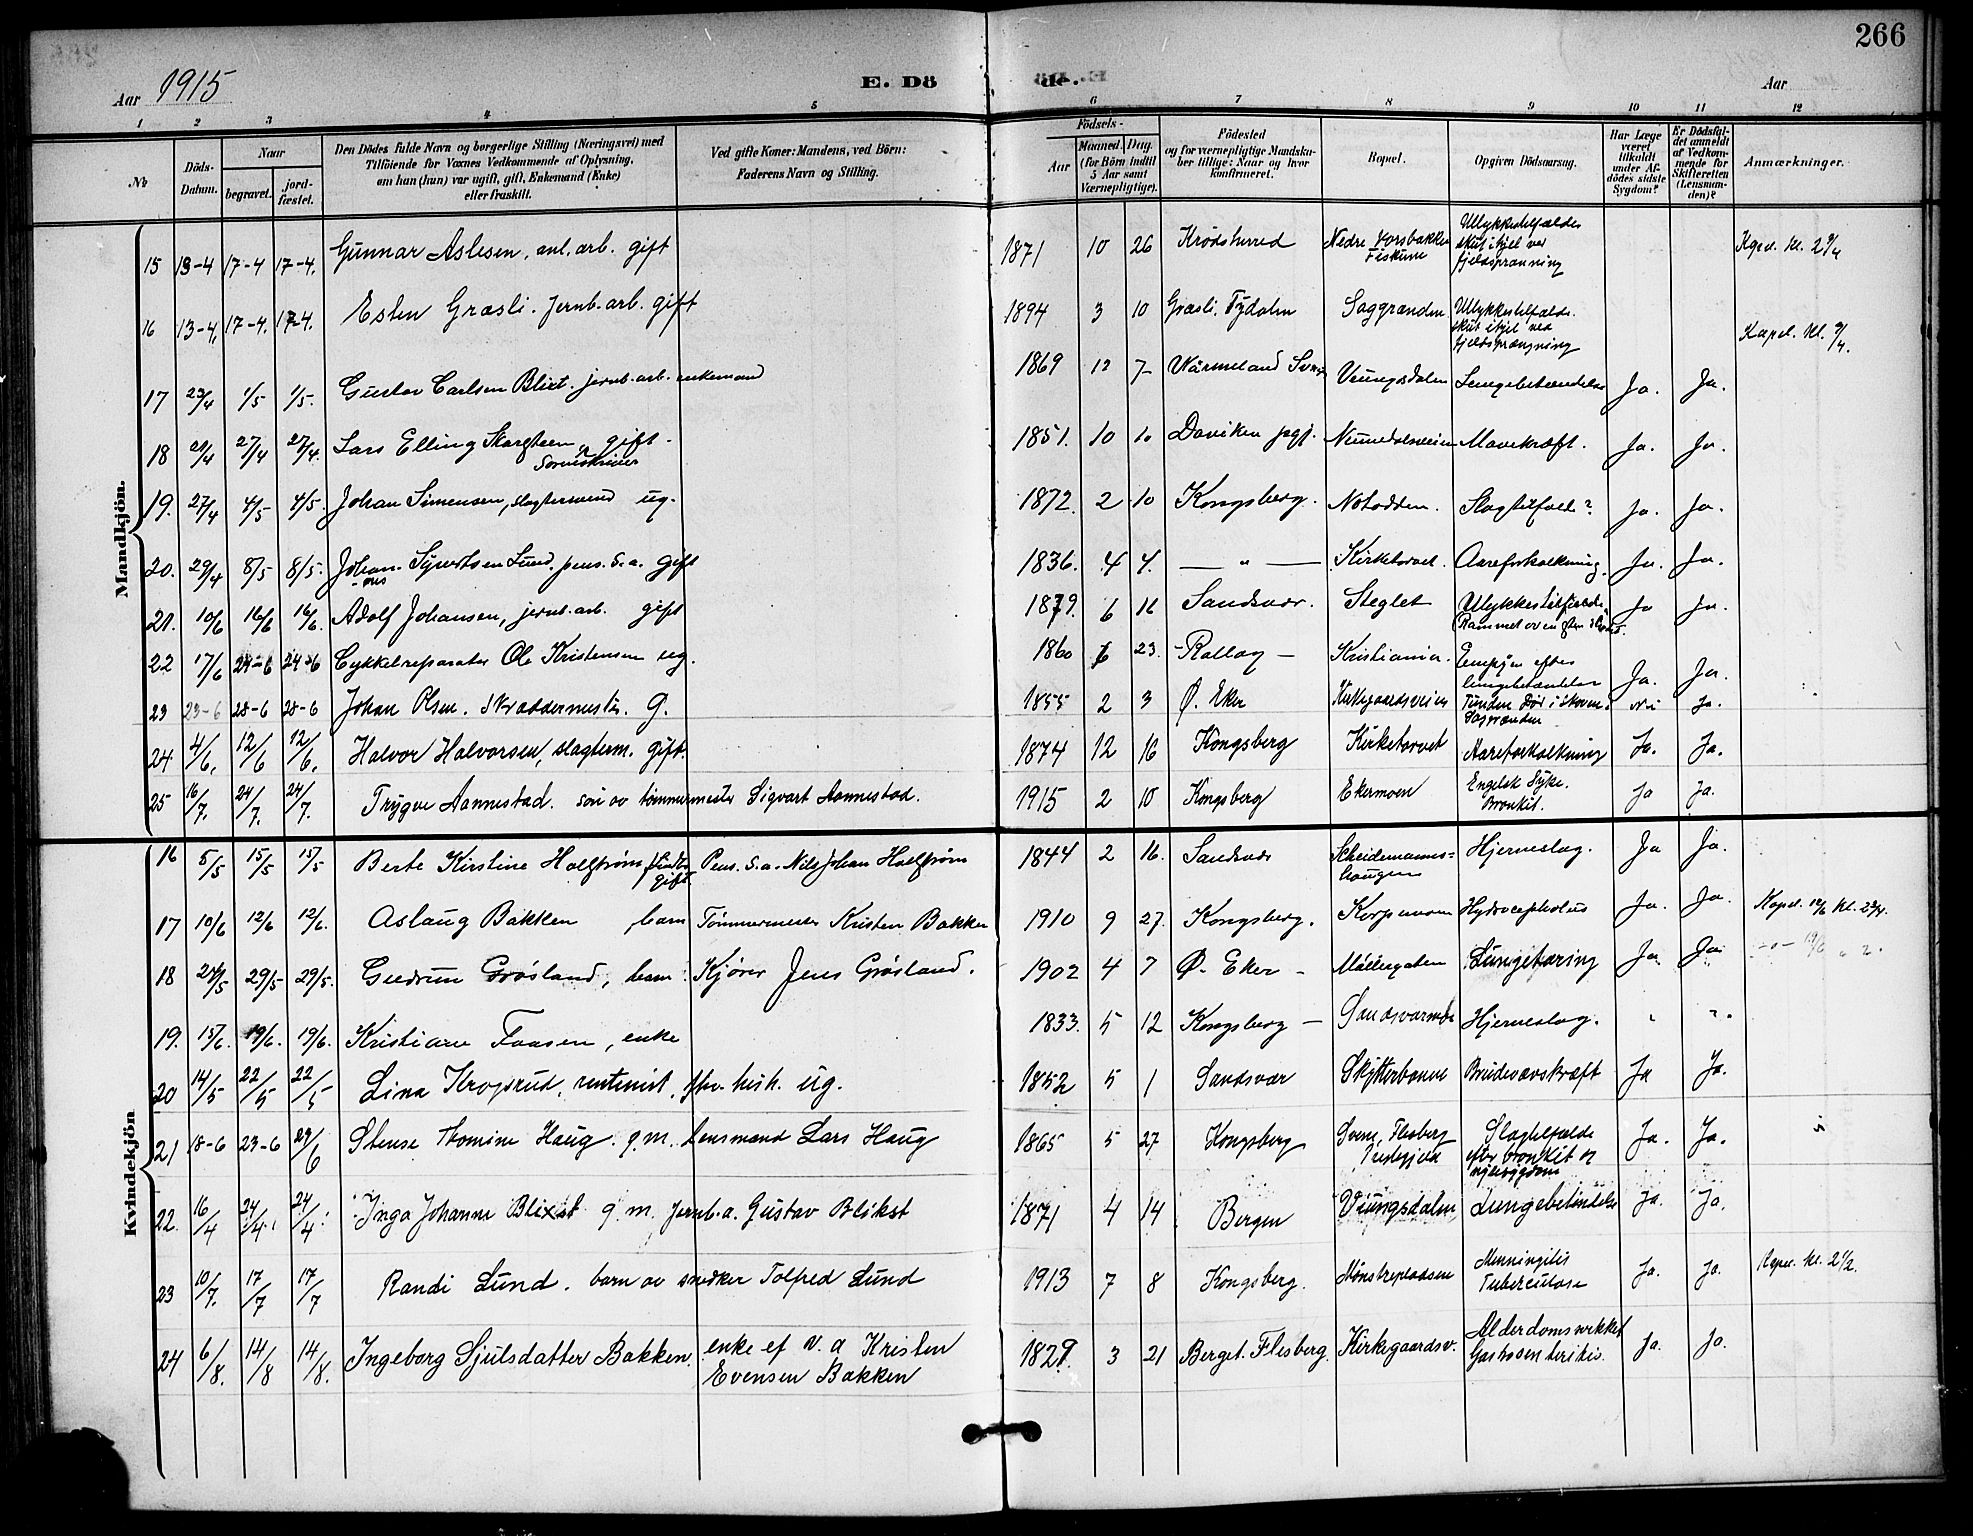 266
Aar 1915
E. Dö
de.
Aar
1 2 3 4 5 6 7 8 9 10 11 12
No
Döds-Datum.
Naar
begravet.
jord-fæstet.
Den Dödes fulde Navn og borgerlige Stilling (Næringsvei) med
Tilföiende for Voxnes Vedkommende af Oplysning,
om han (hun) var ugift, gift, Enkemand (Enke)
eller fraskilt.
Ved gifte Koner: Mandens, ved Börn:
Faderens Navn og Stilling.
Födsels-
Aar
Maaned. Dag.
(for Börn indtil
5 Aar samt
Værnepligtige).
Födested
og for værnepligtige Mandsku-
ber tillige: Naar og hvor
konfirmeret.
Bopæl.
Opgiven Dödsaarsag.
Har Læge
været
tilkaldt
under Af-
dödes sidste
Sygdom?
Er Dödsfal-
det anmeldt
af Vedkom-
mende for
Skifteretten
(Lensman-
den)?
Anmærkninger.
Mandkjön.
15 13-4 17-4 17-4. Gunnar Aslesen, anl. arb. gift 1871 10 26 Krødsherred Nedre Fiskum Ulykkestilfælde skut ihjel ved fjeldsprængning Kapel. kl. 2
16 13-4 17-4. 17-4. Esten Græsli. Jernb. arb. gift 1894 3 10 Græsli. Tydalen Saggrenden Ulykkestilfælde. skut ihjel ved fjeldsprængning Kapel. kl.
17 23/4 1/5 1/5. Gustav Carlsen Blixt. jernb. arb. enkemand 1869 12 7 Wärmeland Veungsdalen Lungebetændelse Ja. Ja.
18 21/4 27/4 27/4. Lars Elling gift. Sorenskriver 1851. 10 10 Daviken pgj. Numedalsveien Mavekræft. Ja. Ja.
19. 27/4 4/5 4/5. Johan Simensen, slagtersvend ug. 1872. 2 10 Kongsberg. Notodden. Slagtilfæld? Ja. Ja.
20. 29/4 8/5 8/5. Johan Syvertsen Lund. pens. s.a. gift 1836. 4 4. — " — Kirketorvet. Aareforkalkning. Ja. Ja.
21. 10/6 16/6 16/6. Adolf Johansen, jernb. arb. gift 1879. 6 16 Sandsvær. Steglet Ulykkestilfælde. Rammet av en sten i hodet. Ja Ja.
22 17/6 24-6 24-6 Cykkelreparatør Ole Kristensen ug. 1860 6 23. Rollag — Kristiania. Empyem efter lungebetændelse Ja. Ja.
23 23-6 28-6 28-6 Johan Olsen. Skræddermester. G. 1855 2 3 Ø. Eker Kirkegaardsveien Funden Død i skoven i Saggrenden Nei Ja.
24 4/6. 12/6 12/6. Halvor Halvorsen, slagterm. gift. 1874 12 16 Kongsberg Kirketorvet Aareforkalkning Ja. Ja.
25 16/7. 24/7. 24/7. Trygve Aannestad. søn av tømmermester Sigvart Aannestad. 1915 2 10 Kongsberg Ekermoen Engelsk Syke. Bronkit. Ja Ja.
Kvindekjön
16 5/5 15/5 15/5 Berte Kirstine Hallstrøm gift Pens. s.a. Nils Johan Hallstrøm 1844 2 16. Sandsvær Scheidemanns=haugen Hjerneslag. Ja Ja.
17 10/6 12/6 12/6. Aslaug Bakken barn Tømmermester Kristen Bakken 1910 9 27. Kongsberg. Korpemoen Hydrocephalus Ja. Ja. Kapel. 12/6 kl.
18 24/5 29/5 29/5. Gudrun Grøsland, barn Kjører Jens Grøsland. 1902 4 7 Ø. Eker — Møllergaten Lungetæring Ja Ja
19. 15/6. 19/6. 19/6. Kristiane Faasen, enke 1833. 5 12 Kongsberg — Sandsværveien Hjerneslag. " "
20 14/5 22/5 22/5 Lina Kroprud, rentenist, ug. 1852 5 1 Sandsvær Skytterbanen Kræft Ja Ja.
21 18-6 23-6 23/6 Stense Thomine Haug. g.m. Lensmand Lars Haug 1865 5 27 Kongsberg Svene, Flesberg Præstegjeld Slagtilfælde efter bronkit og nyresygdom Ja. Ja.
22. 16/4 24/4 24/4 Inga Johanne Blixt g.m. Jernb.a. Gustav Blikst 1871 4 14 Bergen Veungsdalen Lungebetændelse Ja. Ja.
23 10/7. 17/7 17/7 Randi Lund. barn av snedker Tolfred Lund 1913 7 8 Kongsberg. Mønstrepladsen Menningitis Tuberculose Ja. Ja. Kapel. kl. 2 1/2.
24 6/8. 14/8 14/8. Ingeborg Sjulsdatter Bakken. enke ef v.a Kristen Evensen Bakken 1829. 3 21 Berget. Flesberg. Kirkegaardsv. Alderdomssvækket Gastroenteritis. Ja. Ja.